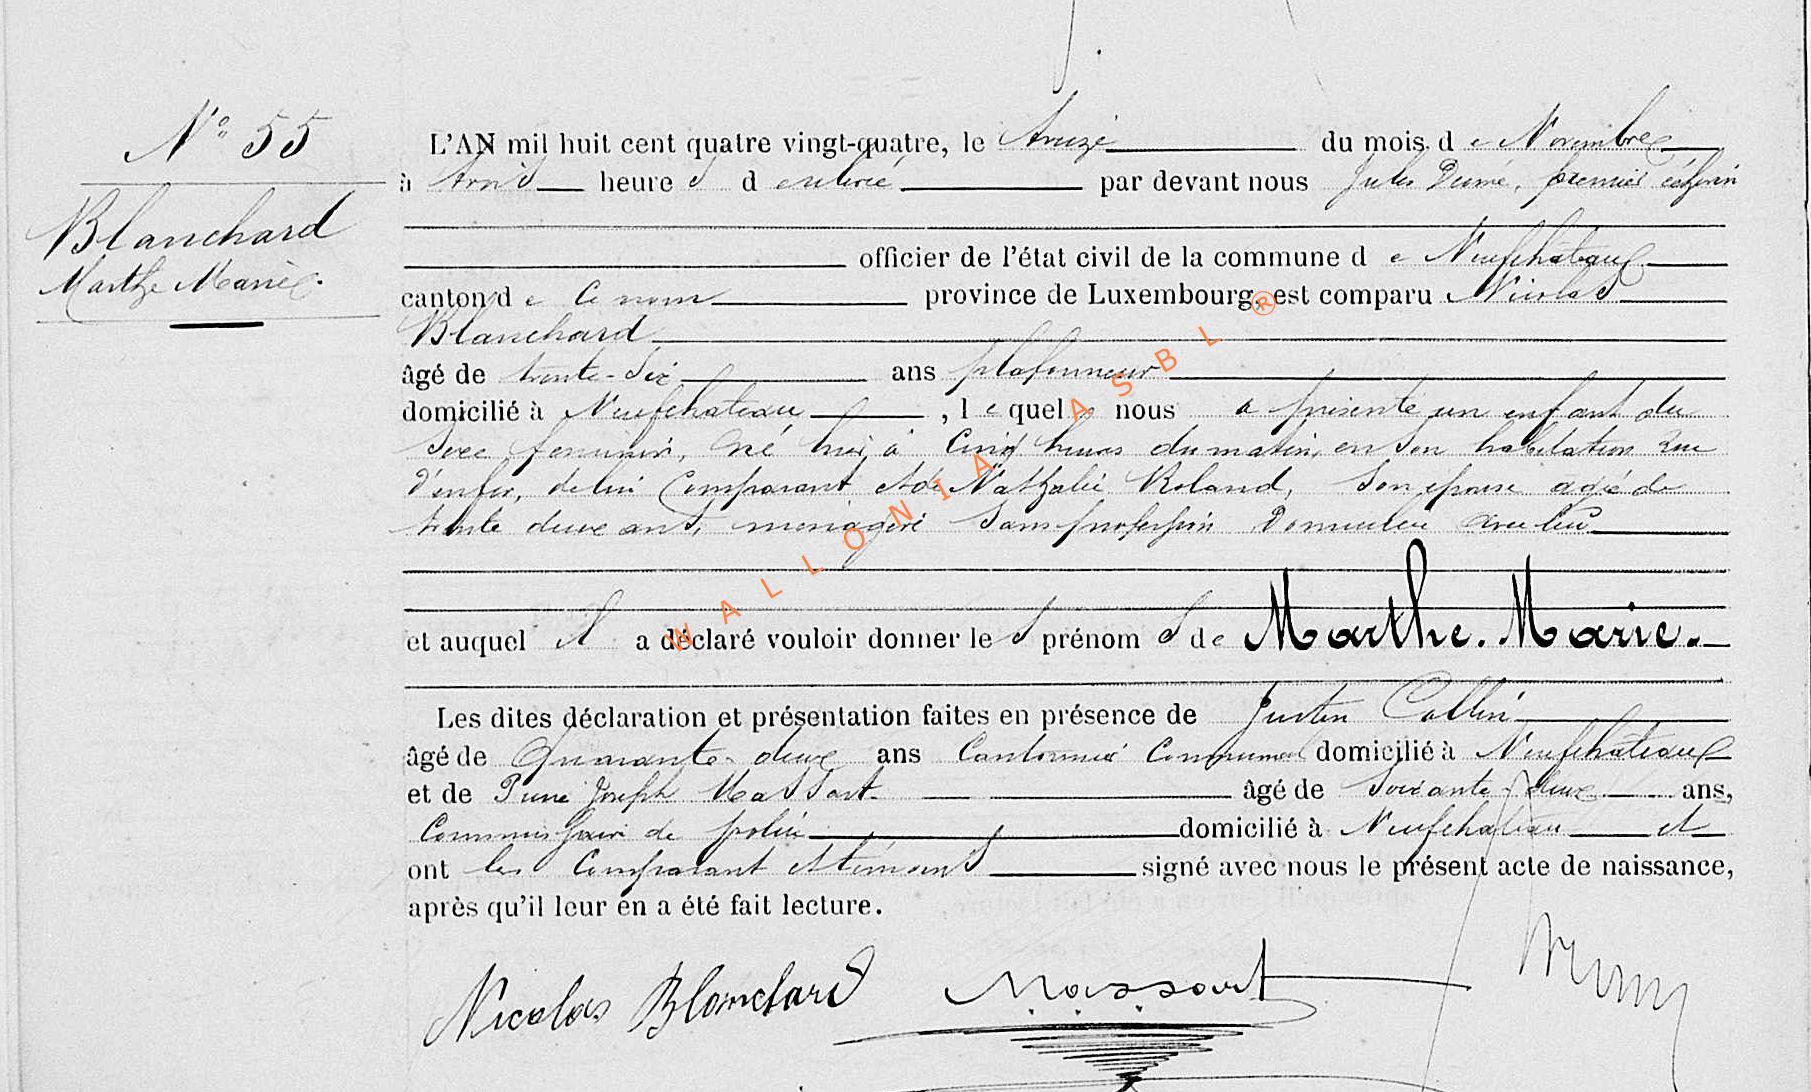 N° 55
Blanchard
Marthe Marie.
L'AN mil huit cent quatre vingt-quatre, le treize du mois de Novembre
à trois heures de relevée par devant nous Jules Dumé, premier échevin
officier de l'état civil de la commune de Neufchâteau
canton de ce nom province de Luxembourg, est comparu Nicolas
Blanchard
âgé de trente-six ans plafonneur
domicilié à Neufchateau, lequel nous a présenté un enfant du
sexe féminin, né hier, à cinq heures du matin, en son habitation rue
d'enfer, de lui comparant et de Nathalie Roland, son épouse agée de
trente deux ans, menagère sans profession domiciliée avec lui
et auquel il a déclaré vouloir donner les prénoms de Marthe. Marie.
Les dites déclaration et présentation faites en présence de Justin Collin
âgé de quarante-deux ans Cantonnier Communal domicilié à Neufchateau
et de Pierre Joseph Massart âgé de soixante-deux ans,
Commissaire de police domicilié à Neufchateau et
ont les comparant et témoins signé avec nous le présent acte de naissance,
après qu'il leur en a été fait lecture.
Nicolas Blanchard Massart
WALLONIA ASBL ®